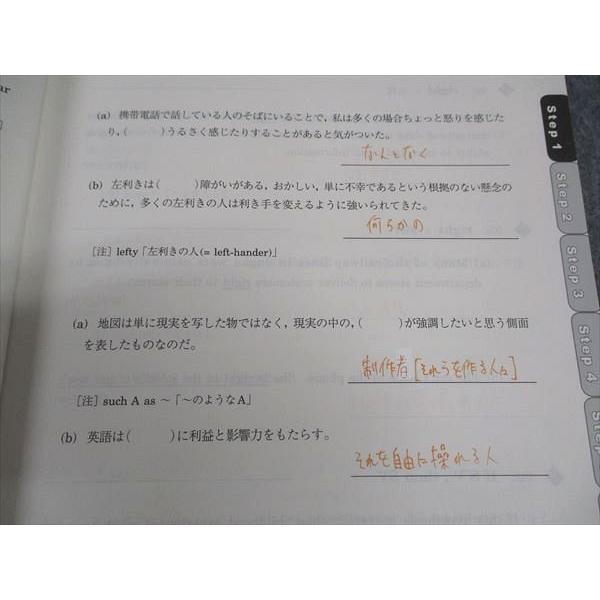 ar
(a) 携帯電話で話している人のそばにいることで，私は多くの場合ちょっと怒りを感じた
り，(　　)うるさく感じたりすることがあると気がついた。
なんとなく
(b) 左利きは(　　)障がいがある，おかしい，単に不幸であるという根拠のない懸念の
ために，多くの左利きの人は利き手を変えるように強いられてきた。
何らかの
［注］lefty「左利きの人(= left-hander)」
(a) 地図は単に現実を写した物ではなく，現実の中の，(　　)が強調したいと思う側面
を表したものなのだ。
制作者［それらを作る人々］
［注］such A as ～「～のようなA」
(b) 英語は(　　)に利益と影響力をもたらす。
それを自由に操れる人
Step 1
Step 2
Step 3
Step 4
Step